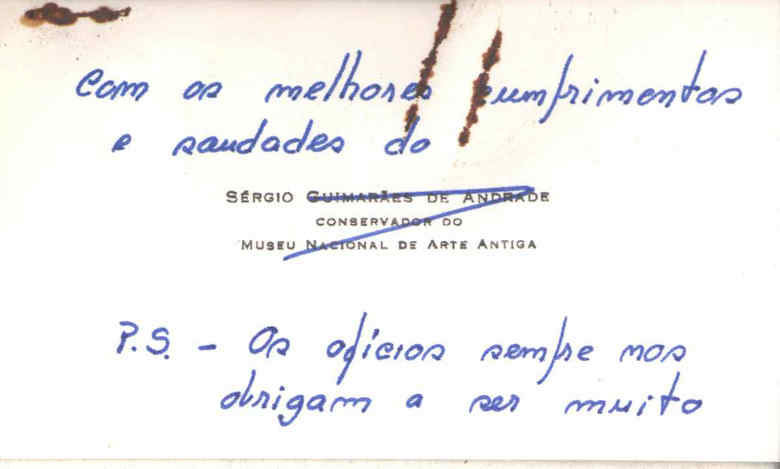 Com os melhores cumprimentos
e saudades do
SÉRGIO GUIMARÃES DE ANDRADE
CONSERVADOR DO
MUSEU NACIONAL DE ARTE ANTIGA
P.S. - Os ofícios sempre nos
obrigam a ser muito